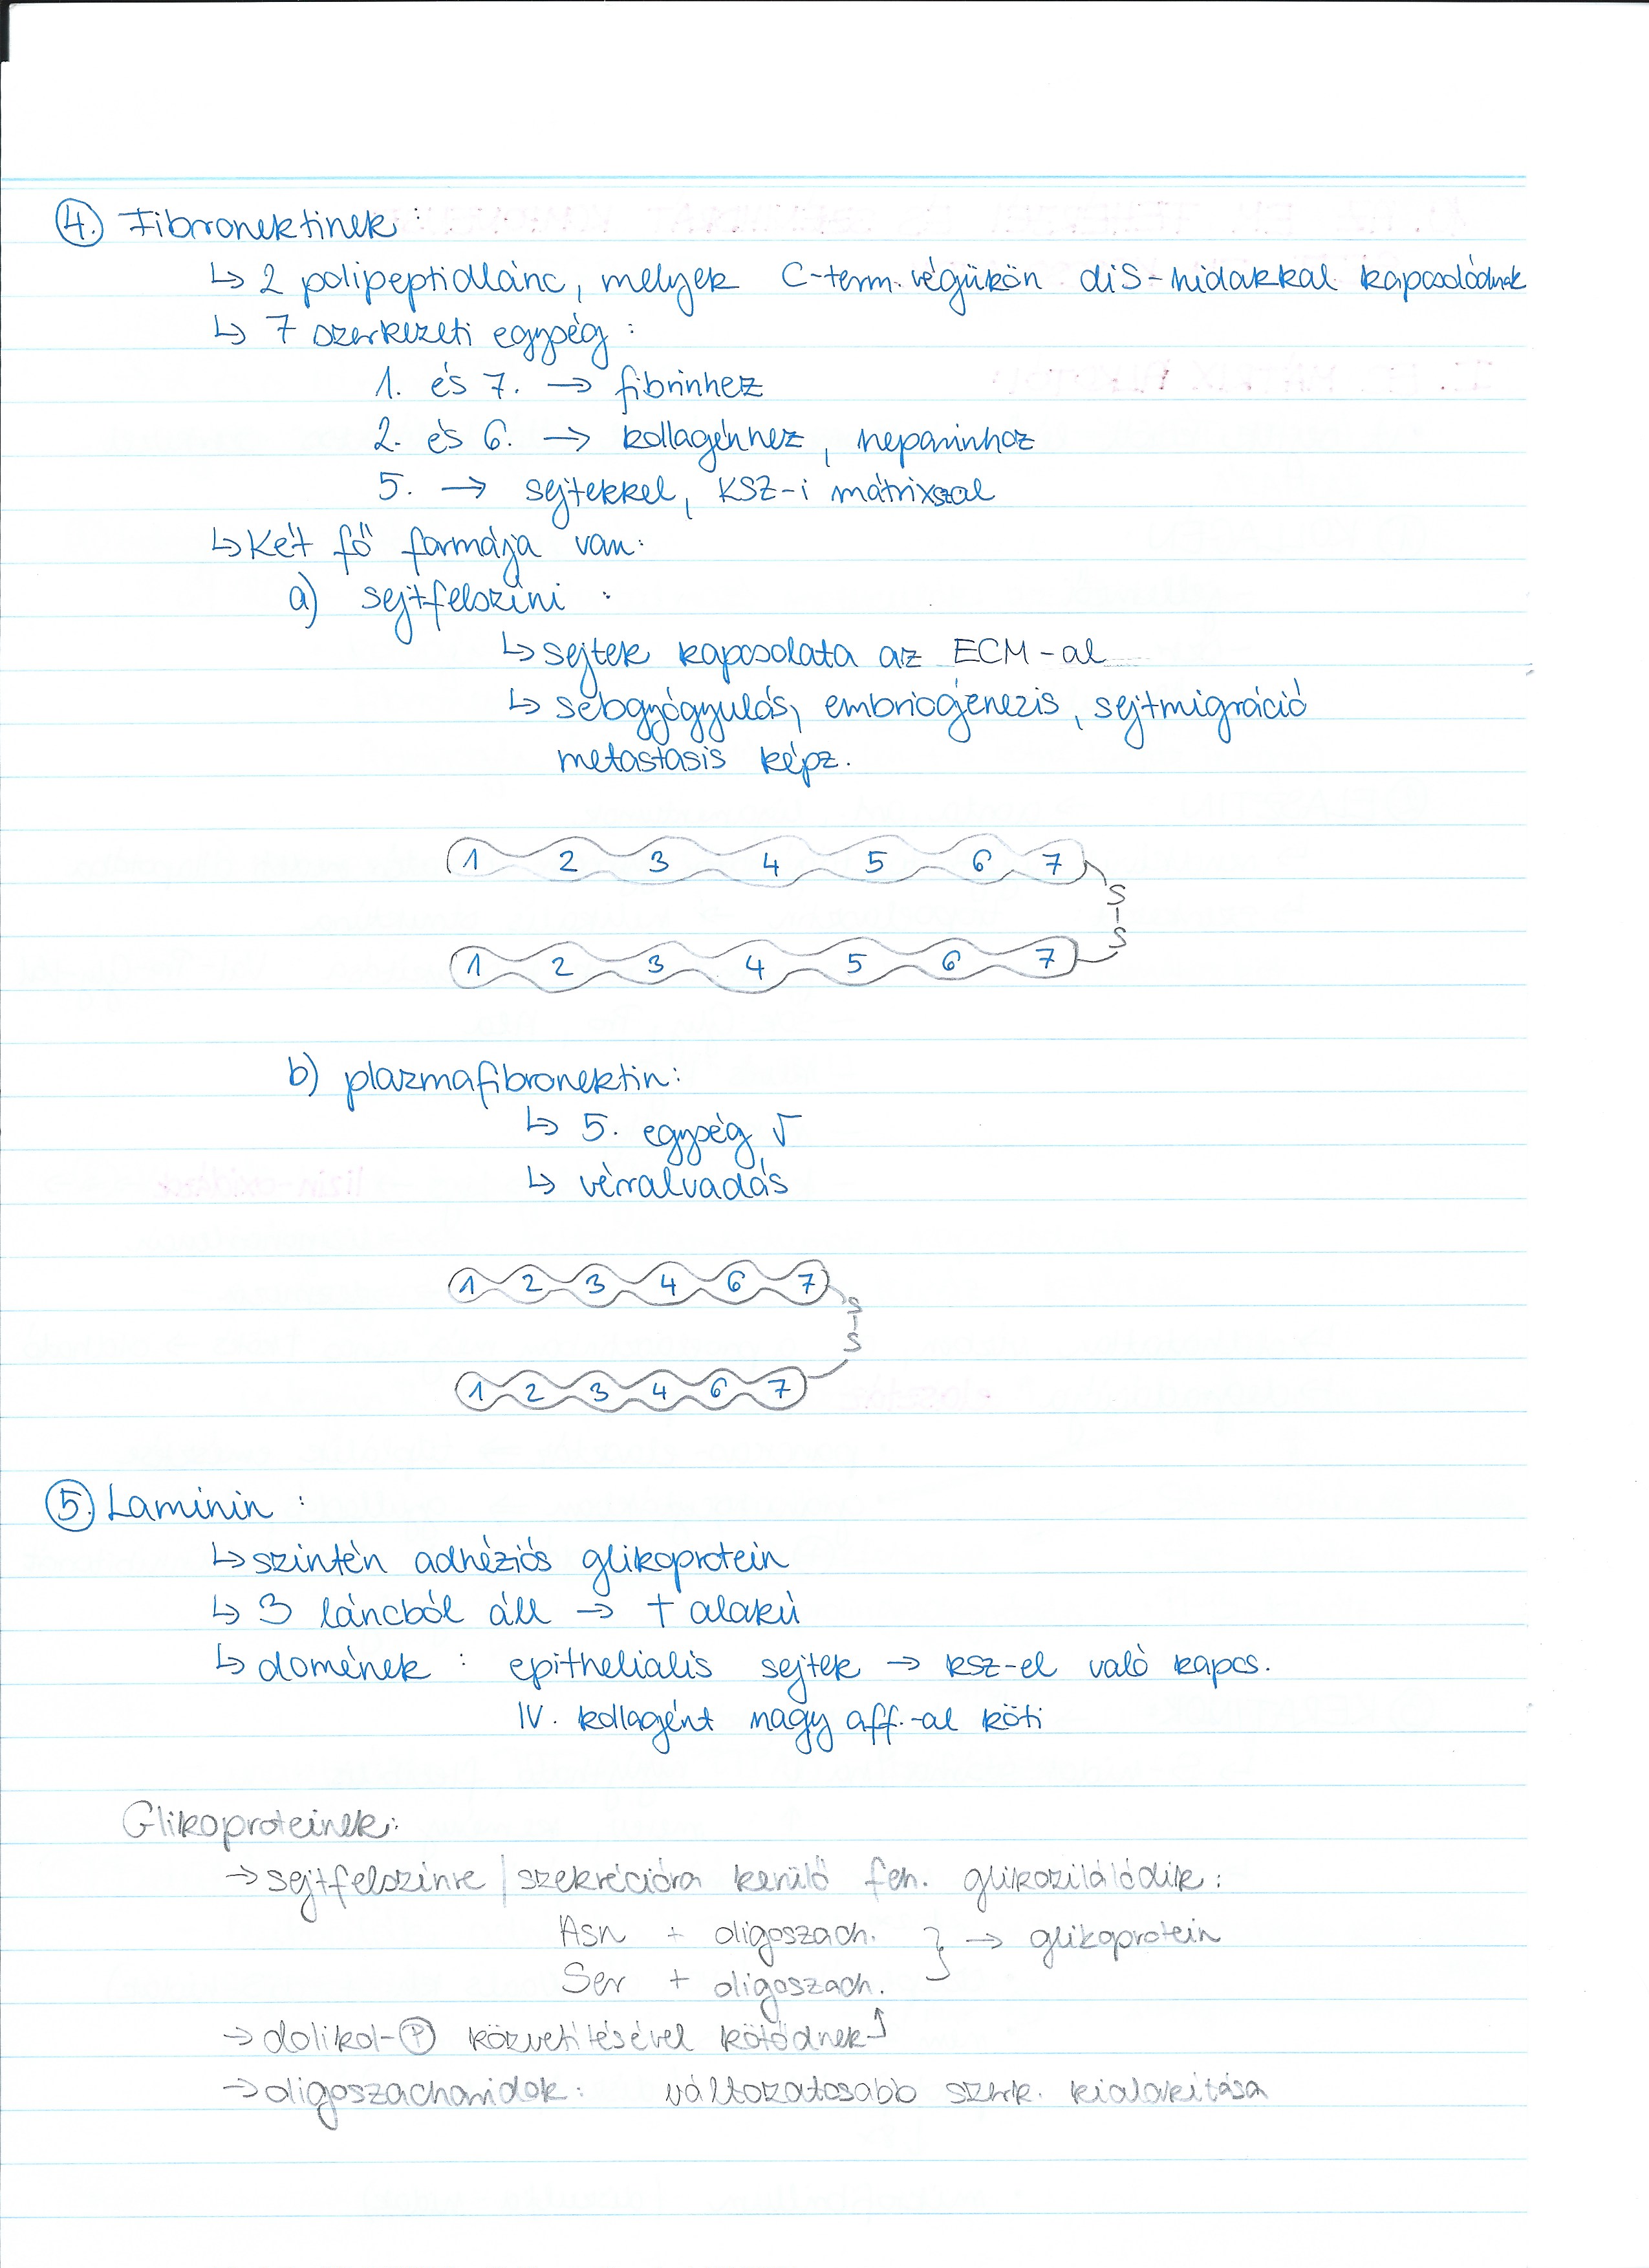 4. Fibronektinek:
↳ 2 polipeptidlánc, melyek C-term. végükön diS-hidakkal kapcsolódnak
↳ 7 szerkezeti egység:
1. és 7. → fibrinhez
2. és 6. → kollagénhez, heparinhoz
5. → sejtekkel, KSZ-i mátrixszal
↳ Két fő formája van:
a) sejtfelszíni:
↳ sejtek kapcsolata az ECM-al
↳ sebgyógyulás, embriogenezis, sejtmigráció
metastasis képz.
1 2 3 4 5 6 7
S
S
1 2 3 4 5 6 7
b) plazmafibronektin:
↳ 5. egység
↳ véralvadás
1 2 3 4 6 7
S
S
1 2 3 4 6 7
5. Laminin:
↳ szintén adhéziós glikoprotein
↳ 3 láncból áll → † alakú
↳ domének: epithelialis sejtek → ksz-el való kapcs.
IV. kollagént nagy aff.-al köti
Glikoproteinek:
→ sejtfelszínre / szekrécióra kerülő feh. glikozilálódik:
Asn + oligoszach. } → glikoprotein
Ser + oligoszach.
→ dolikol-P közvetítésével kötődnek ↑
→ oligoszacharidok: változatosabb szerk. kialakítása